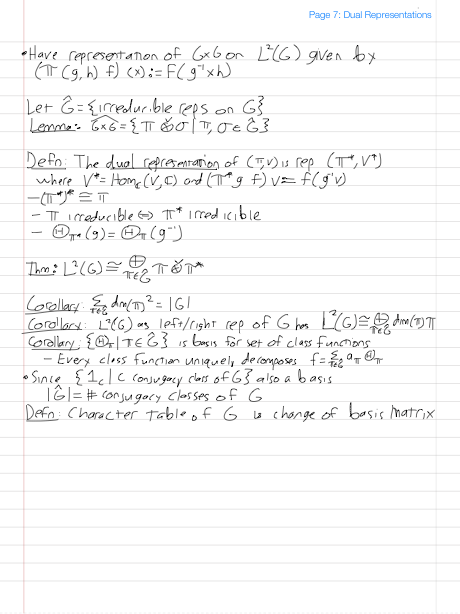 Page 7: Dual Representations
• Have representation of G×G on L²(G) given by
(π(g,h) f)(x) := f(g⁻¹xh)
Let Ĝ = {irreducible reps on G}
Lemma: \widehat{G×G} = {π ⊠ σ | π, σ ∈ Ĝ}
Defn: The dual representation of (π,V) is rep (π*, V*)
where V* = Hom_ℂ(V,ℂ) and (π* g f) v = f(g⁻¹v)
– (π*)* ≅ π
– π irreducible ⇔ π* irredicible
– Θ_π*(g) = Θ_π(g⁻¹)
Thm: L²(G) ≅ ⊕_{π∈Ĝ} π ⊠ π*
Corollary: Σ_{π∈Ĝ} dim(π)² = |G|
Corollary: L²(G) as left/right rep of G has L²(G) ≅ ⊕_{π∈Ĝ} dim(π) π
Corollary: {Θ_π | π ∈ Ĝ} is basis for set of class functions
– Every class function uniquely decomposes f = Σ_{π∈Ĝ} a_π Θ_π
• Since {1_C | C conjugacy class of G} also a basis
|Ĝ| = # conjugacy classes of G
Defn: Character table of G is change of basis matrix